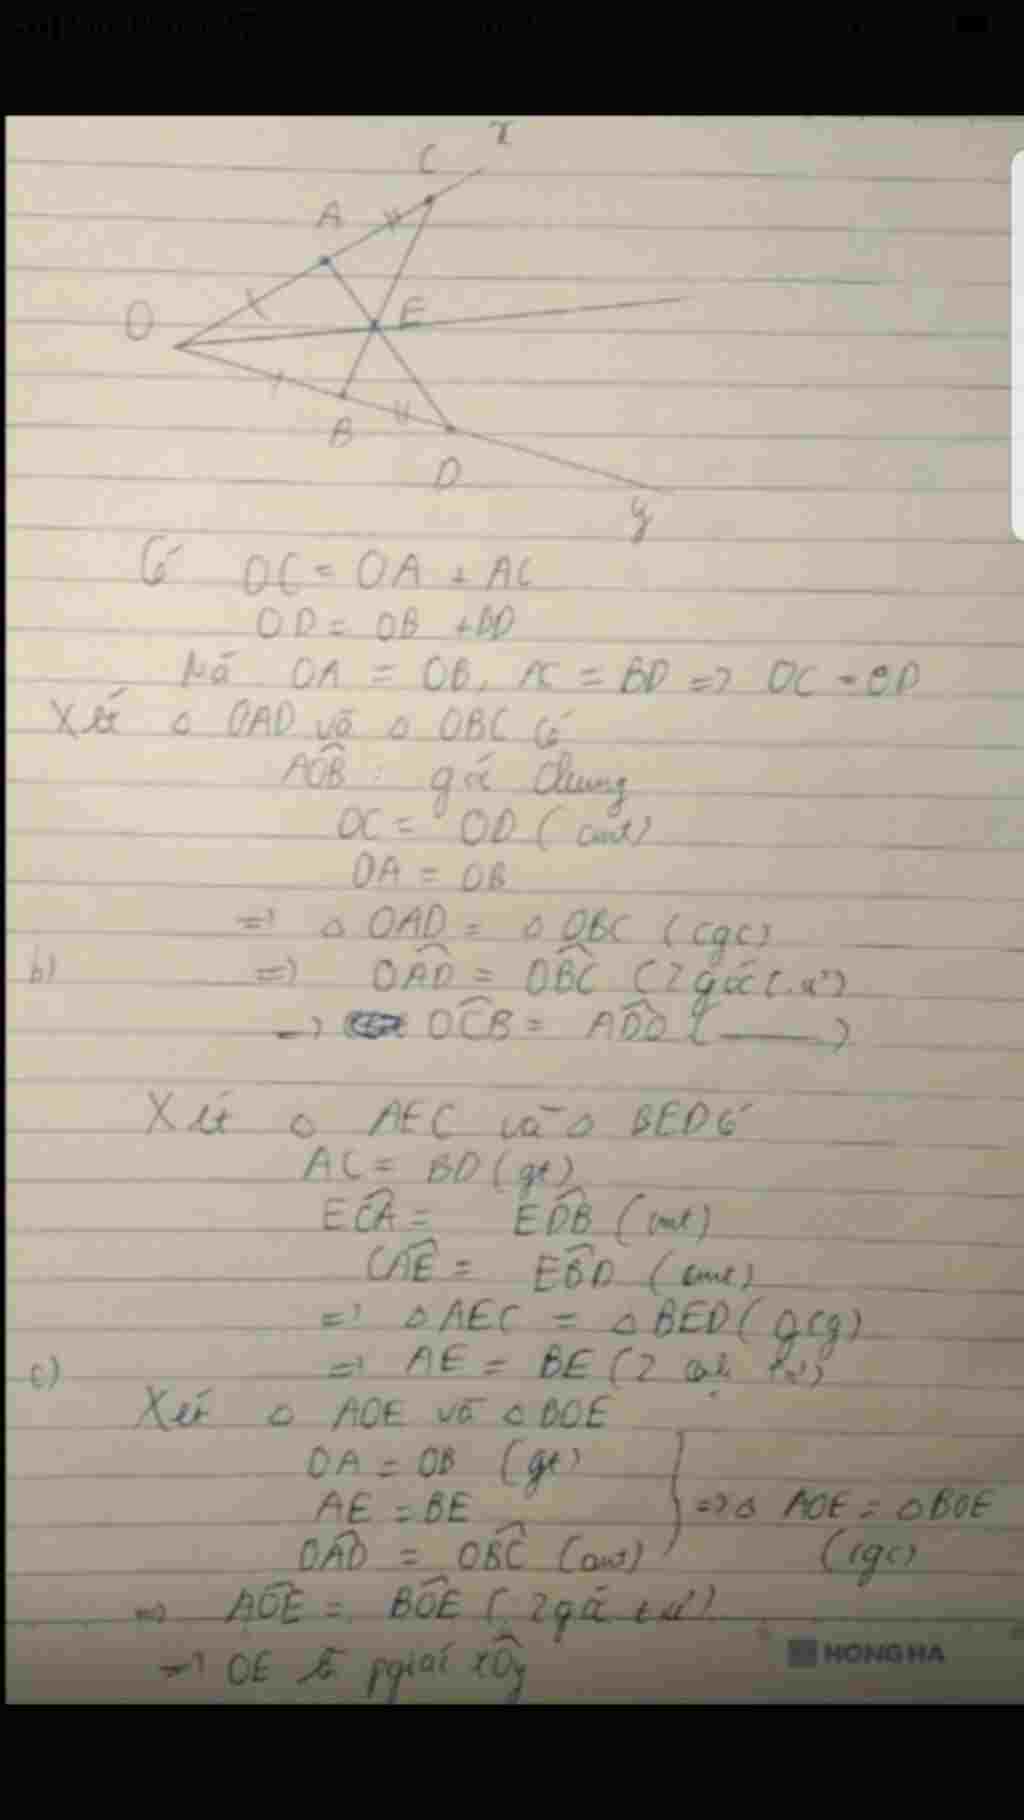 x
C
A
O
E
B
D
y
Có OC = OA + AC
OD = OB + BD
Mà OA = OB, AC = BD => OC = OD
Xét △ OAD và △ OBC có
AOB : góc chung
OC = OD (cmt)
OA = OB
=> △ OAD = △ OBC (cgc)
b) => OAD = OBC (2 góc t.ư)
=> OCB = ADO ( ——— )
Xét △ AEC và △ BED có
AC = BD (gt)
ECA = EDB (cmt)
CAE = EBD (cmt)
=> △ AEC = △ BED (gcg)
=> AE = BE (2 cạh tư)
c)
Xét △ AOE và △ BOE
OA = OB (gt)
AE = BE => △ AOE = △ BOE
OAD = OBC (cmt) (cgc)
=> AOE = BOE (2 góc tư)
=> OE là pgiác xOy
HONG HA